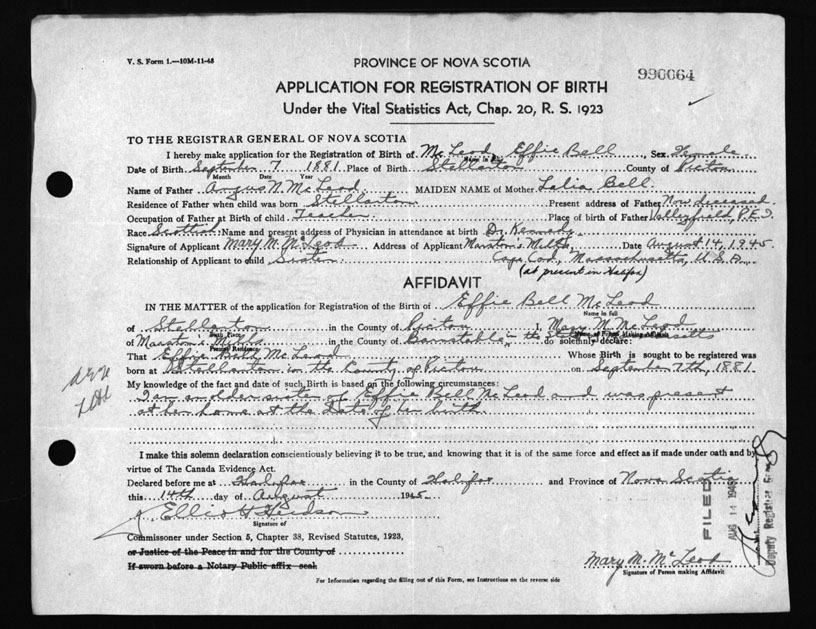 V. S. Form 1.—10M-11-43
PROVINCE OF NOVA SCOTIA
990064
APPLICATION FOR REGISTRATION OF BIRTH
Under the Vital Statistics Act, Chap. 20, R. S. 1923
TO THE REGISTRAR GENERAL OF NOVA SCOTIA
I hereby make application for the Registration of Birth of McLeod, Effie Bell Sex Female
Name in full
Date of Birth September 7 1881 Place of Birth Stellarton County of Pictou
Month Date Year
Name of Father Angus N. McLeod MAIDEN NAME of Mother Lelia Bell
Residence of Father when child was born Stellarton Present address of Father Now deceased
Occupation of Father at Birth of child Teacher Place of birth of Father Valleyfield, P.E.I.
Race Scottish Name and present address of Physician in attendance at birth Dr. Kennedy
Signature of Applicant Mary M. McLeod Address of Applicant Marston's Mills, Date August 14, 1945.
Relationship of Applicant to child Sister Cape Cod, Massachusetts, U.S.A.
(at present in Halifax)
AFFIDAVIT
IN THE MATTER of the application for Registration of the Birth of Effie Bell McLeod
Name in full
of Stellarton in the County of Pictou I, Mary M. McLeod
Birth Place
of Marston's Mills in the County of Barnstable, in the State of Massachusetts do solemnly declare:
Present Residence
That Effie Bell McLeod Whose Birth is sought to be registered was
born at Stellarton in the County of Pictou on September 7th, 1881.
My knowledge of the fact and date of such Birth is based on the following circumstances:
I am an older sister of Effie Bell McLeod and was present
at her home at the date of her birth.
I make this solemn declaration conscientiously believing it to be true, and knowing that it is of the same force and effect as if made under oath and by
virtue of The Canada Evidence Act.
Declared before me at Halifax in the County of Halifax and Province of Nova Scotia
this 14th day of August 1945
Elliott Hudson
Signature of
Commissioner under Section 5, Chapter 38, Revised Statutes, 1923,
or Justice of the Peace in and for the County of
If sworn before a Notary Public affix seal.
FILED
AUG 14 1945
Deputy Registrar General
Mary M. McLeod
Signature of Person making Affidavit
For Information regarding the filling out of this Form, see Instructions on the reverse side